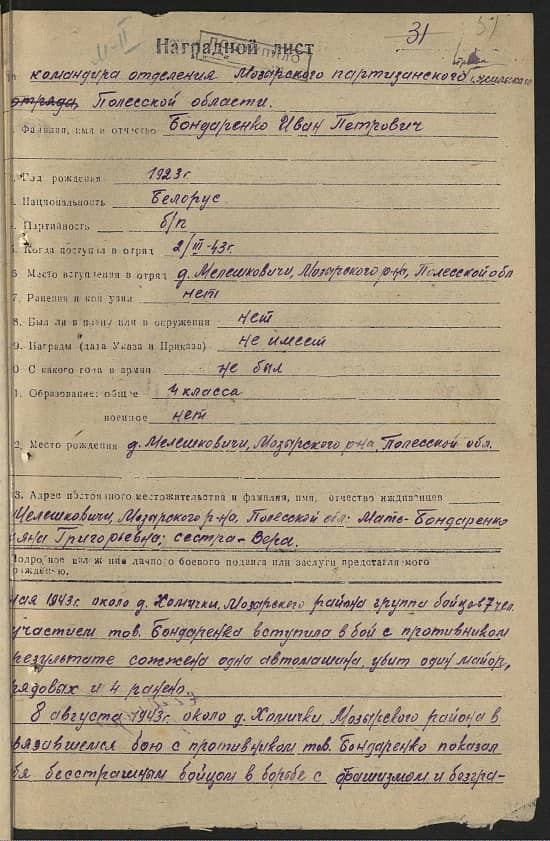 31
Наградной лист
командира отделения Мозарского партизанского
отряда, Полесской области.
Фамилия, имя и отчество Бондаренко Иван Петрович
Год рождения 1923г
Национальность Белорус
Партийность б/п
Когда поступил в отряд 2/III-43г.
6 Место вступления в отряд д. Мелешковичи, Мозарского р-на, Полесской обл
7. Ранения и контузии нет
8. Был ли в плену или в окружении нет
9. Награды (дата Указа и Приказа) не имеет
0 С какого года в армии не был
1. Образование: общее 4 класса
военное нет
2. Место рождения д. Мелешковичи, Мозырского р-на, Полесской обл.
3. Адрес постоянного местожительства и фамилия, имя, отчество иждивенцев
Мелешковичи, Мозарского р-на, Полесской обл. Мать-Бондаренко
яна Григорьевна; сестра-Вера.
Подробное изложение личного боевого подвига или заслуги представляемого
рождению.
мая 1943г. около д. Хомички, Мозарского района группа бойцов 7 чел.
участием тов. Бондаренка вступила в бой с противником
результате сожжена одна автомашина, убит один майор,
рядовых и 4 ранено.
8 августа 1943г. около д. Хомички, Мозырского района в
вязавшемся бою с противником тов. Бондаренко показал
бя бесстрашным бойцом в борьбе с фашизмом и безгра-